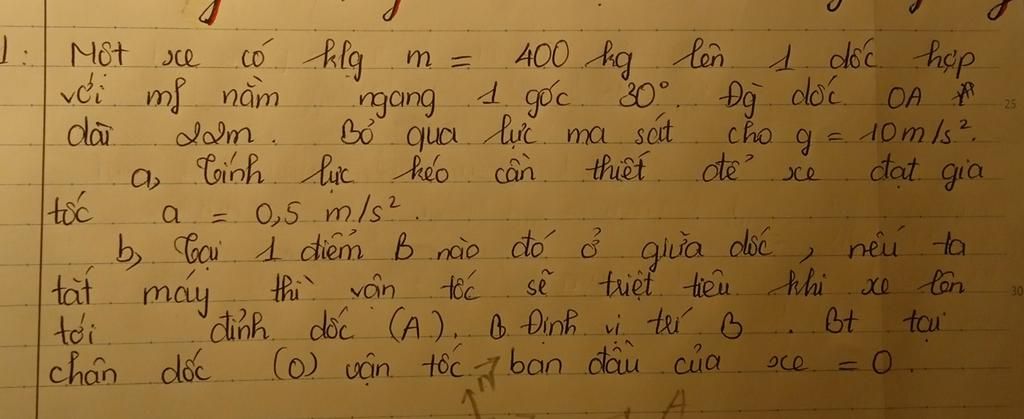 1: Một xe có klg m = 400 kg lên 1 dốc hợp
với mf nằm ngang 1 góc 30°. Đg dốc OA
dài 22m. Bỏ qua lực ma sát cho g = 10m/s².
a, Tính lực kéo cần thiết để xe đạt gia
tốc a = 0,5 m/s².
b, Tại 1 điểm B nào đó ở giữa dốc, nếu ta
tắt máy thì vận tốc sẽ triệt tiêu khi xe lên
tới đỉnh dốc (A). Định vị trí B. Bt tại
chân dốc (O) vận tốc ban đầu của xe = 0.
N A